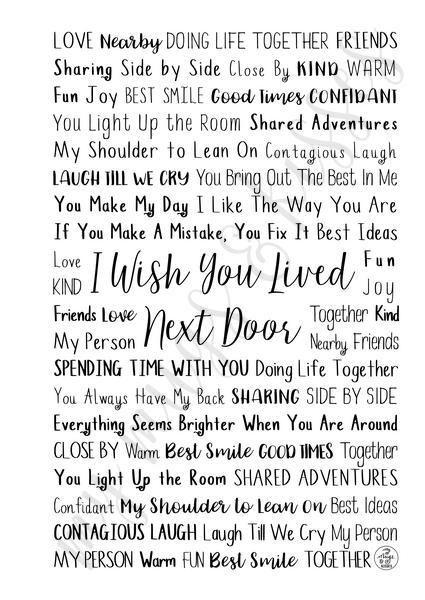 LOVE Nearby DOING LIFE TOGETHER FRIENDS
Sharing Side by Side Close By KIND WARM
Fun Joy BEST SMILE Good Times CONFIDANT
You Light Up the Room Shared Adventures
My Shoulder to Lean On Contagious Laugh
LAUGH TILL WE CRY You Bring Out The Best In Me
You Make My Day I Like The Way You Are
If You Make A Mistake, You Fix It Best Ideas
Love
KIND
I Wish You Lived
Fun
Joy
Friends Love
My Person
Next Door
Together Kind
Nearby Friends
SPENDING TIME WITH YOU Doing Life Together
You Always Have My Back SHARING SIDE BY SIDE
Everything Seems Brighter When You Are Around
CLOSE BY Warm Best Smile GOOD TIMES Together
You Light Up the Room SHARED ADVENTURES
Confidant My Shoulder to Lean On Best Ideas
CONTAGIOUS LAUGH Laugh Till We Cry My Person
MY PERSON Warm FUN Best Smile TOGETHER